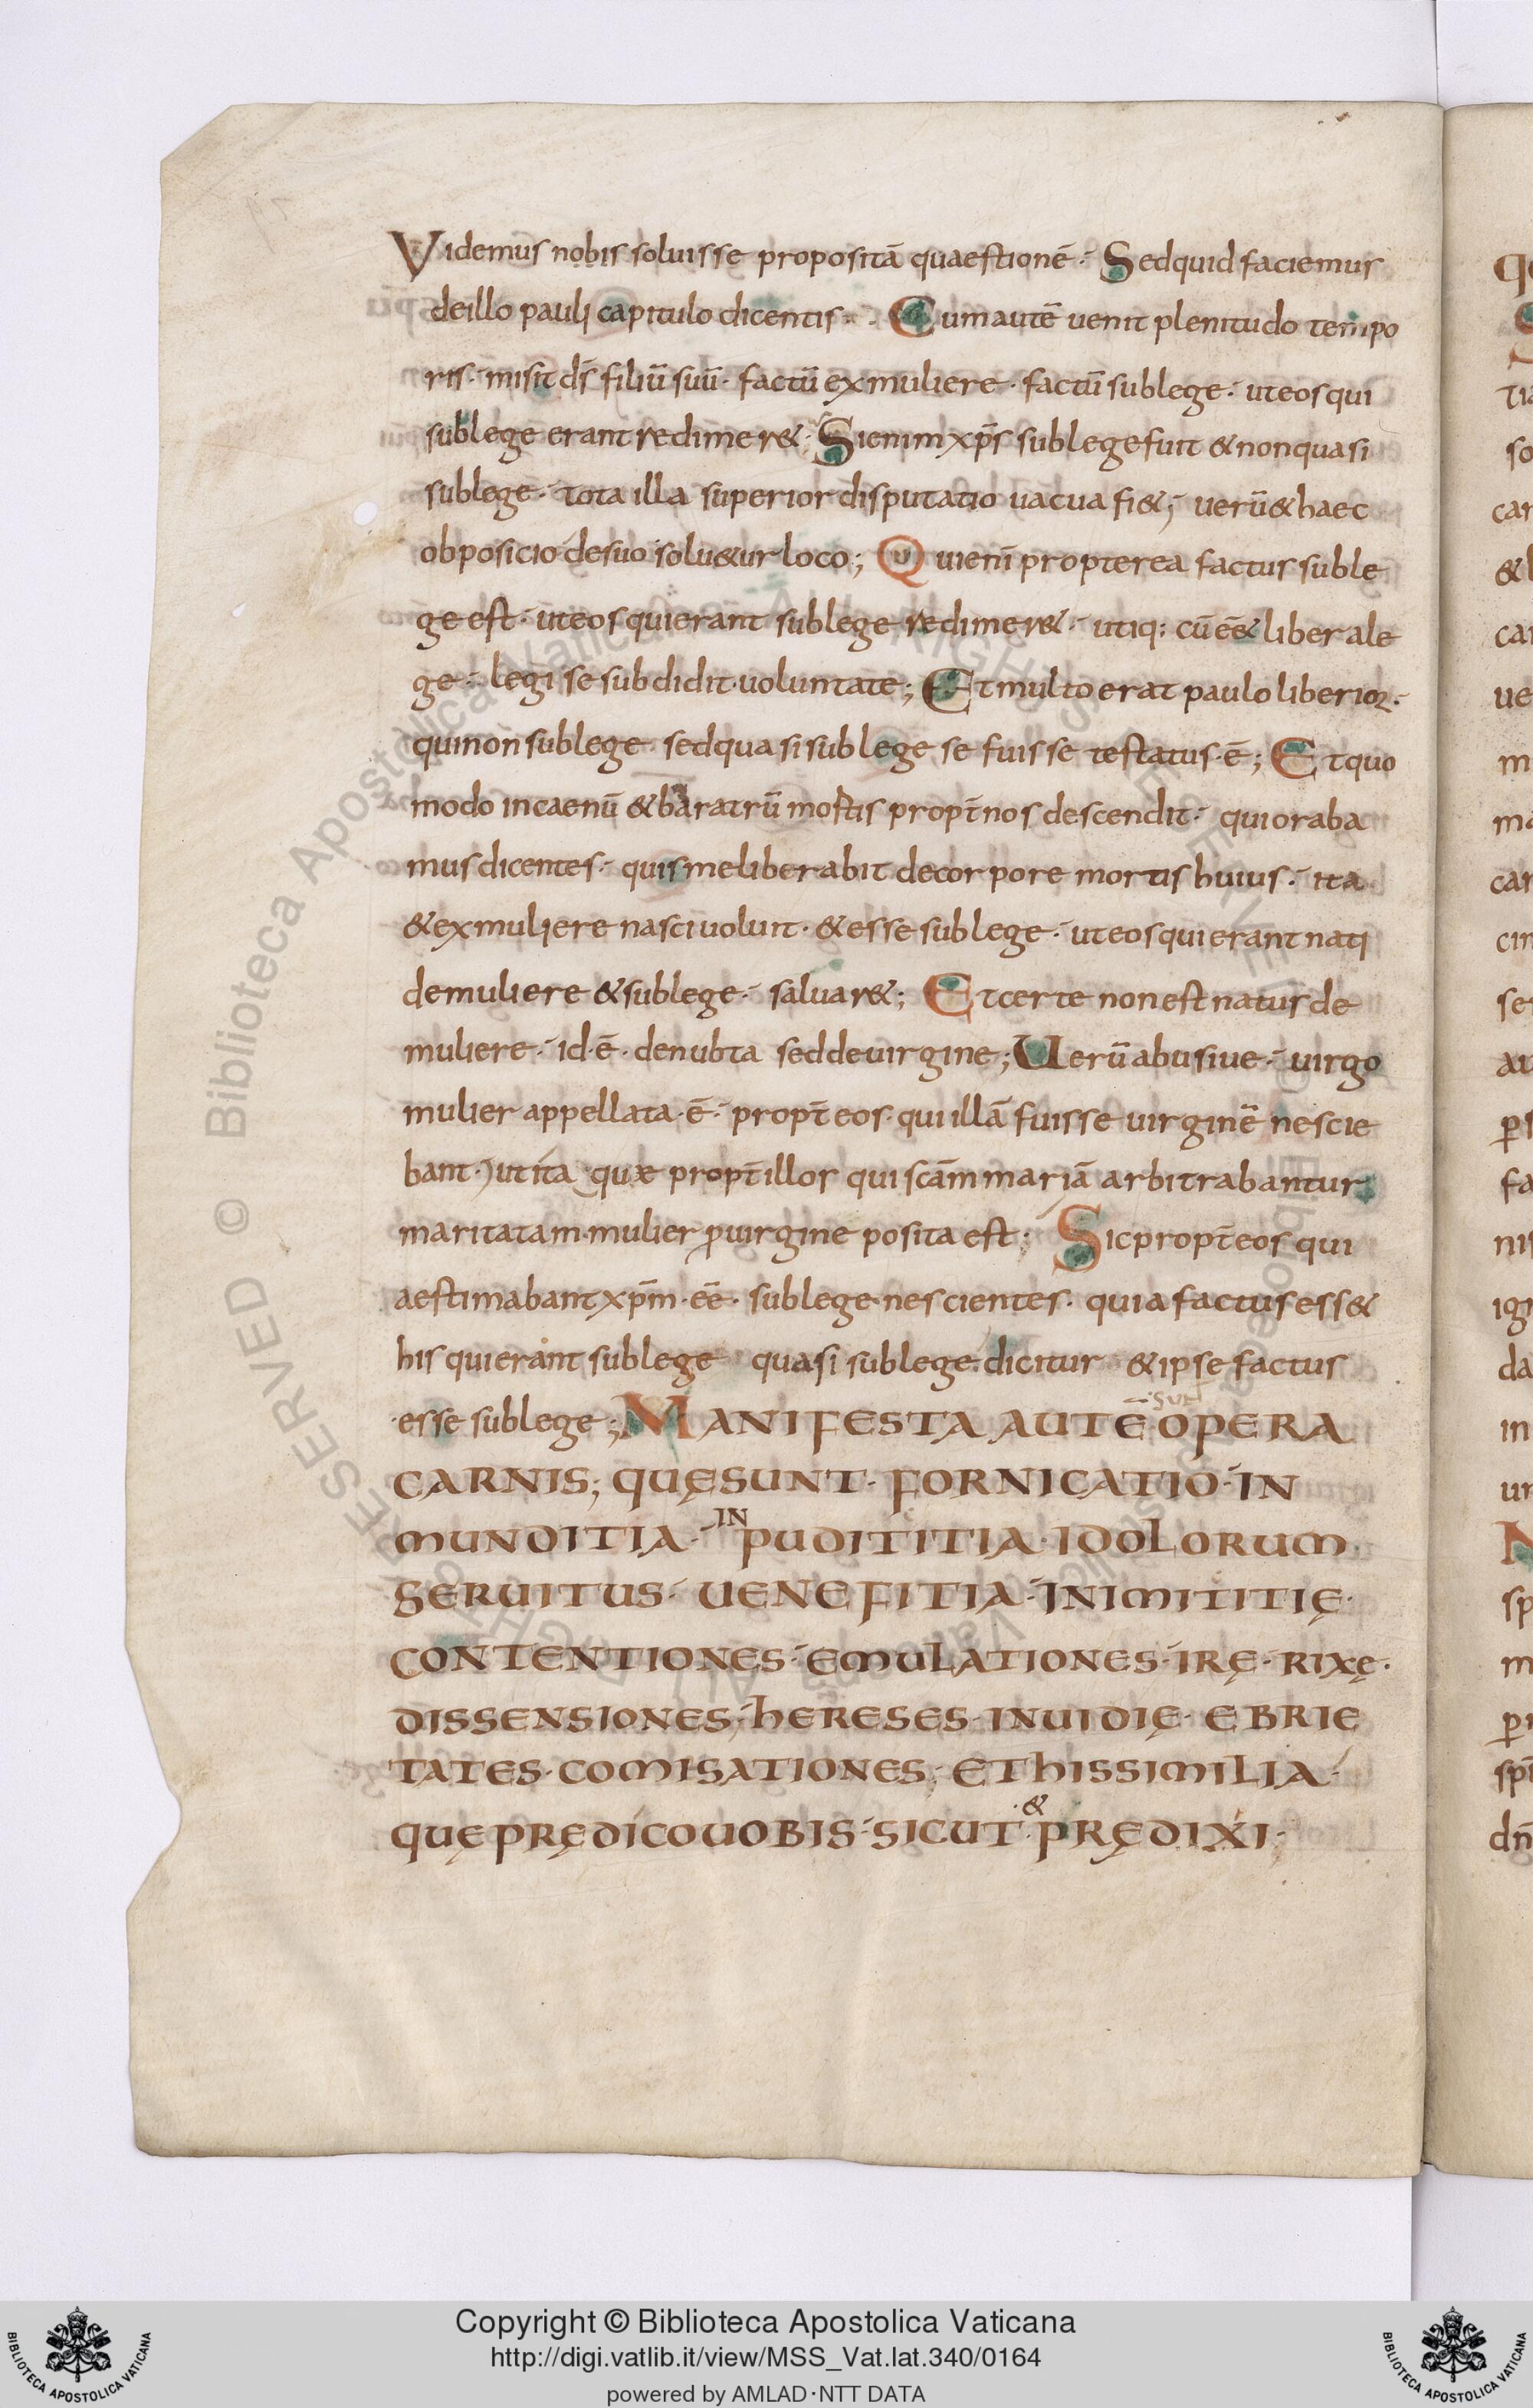 Videmus nobis soluisse propositā quaestionē· Sed quid faciemus
de illo pauli capitulo dicentis· Cum autē uenit plenitudo tempo
ris· misit dn̄s filiū suū· factū ex muliere· factū sub lege· ut eos qui
sub lege erant redimer&· Si enim xp̄s sub lege fuit & non quasi
sub lege· tota illa superior disputatio uacua fi&; uerū & haec
obposicio de suo solu&ur loco; Qui eni propterea factus sub le
ge est· ut eos qui erant sub lege redimer&· utiq: cū eē& liber a le
ge· legi se subdidit uoluntate; Et multo erat paulo liberior·
qui non sub lege sed quasi sub lege se fuisse testatus·ē; Et quo
modo in caenū & baratrū mortis propt̄ nos descendit· qui oraba
mus dicentes· quis me liberabit de corpore mortis huius· ita
& ex muliere nasci uoluit· & esse sub lege· ut eos qui erant nati
de muliere & sub lege· saluar&; Et certe non est natus de
muliere· id·ē· de nubta sed de uirgine; Uerū abusiue· uirgo
mulier appellata·ē· propt̄ eos qui illā fuisse uirginē nescie
bant· ut ita quae propt̄ illor qui scām mariā arbitrabantur
maritatam· mulier p̄ uirgine posita est; Sic propt̄ eos qui
aestimabant xp̄m·eē· sub lege nescientes· quia factus ess&
his qui erant sub lege quasi sub lege dicitur & ipse factus
esse sub lege; MANIFESTA AUTĒ ·sunt OPERA
CARNIS; QUĘ SUNT· FORNICATIO· IN
MUNDITIA· IN PUDITITIA· IDOLORUM
SERUITUS· UENEFITIA· INIMITITIĘ·
CONTENTIONES· EMULATIONES· IRĘ· RIXĘ·
DISSENSIONES; HERESES· INUIDIĘ· EBRIE
TATES· COMISATIONES; ET HIS SIMILIA·
QUĘ PRĘDICO UOBIS· SICUT & PRĘDIXI·
© Biblioteca Apostolica Vaticana ALL RIGHTS RESERVED
Copyright © Biblioteca Apostolica Vaticana
http://digi.vatlib.it/view/MSS_Vat.lat.340/0164
powered by AMLAD·NTT DATA
BIBLIOTECA APOSTOLICA VATICANA
BIBLIOTECA APOSTOLICA VATICANA